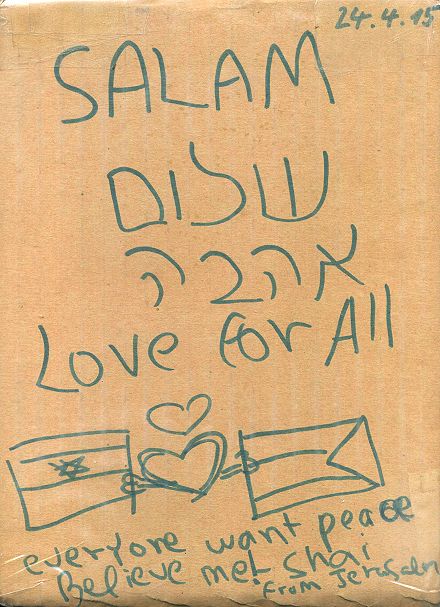 24.4.15
SALAM
שלום
אהבה
Love for All
everyone want peace
Believe me! Shai
From Jerusalem